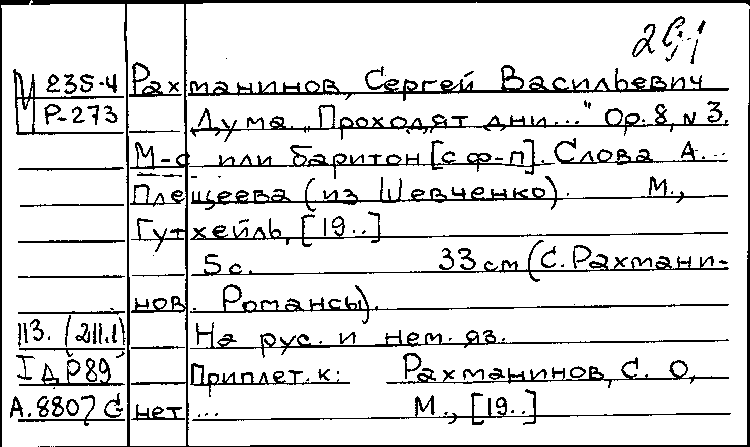 291
М 235-4 Рахманинов, Сергей Васильевич
Р-273 Дума „Проходят дни..." Op. 8, № 3.
М-с или баритон [с ф-п]. Слова А...
Плещеева (из Шевченко). М.,
Гутхейль, [19..]
5 с. 33 см (С. Рахмани-
нов. Романсы).
113. (211.1) На рус. и нем. яз.
I д Р89 Приплет. к: Рахманинов, С. О,
А. 8807 G нет ... М., [19..]